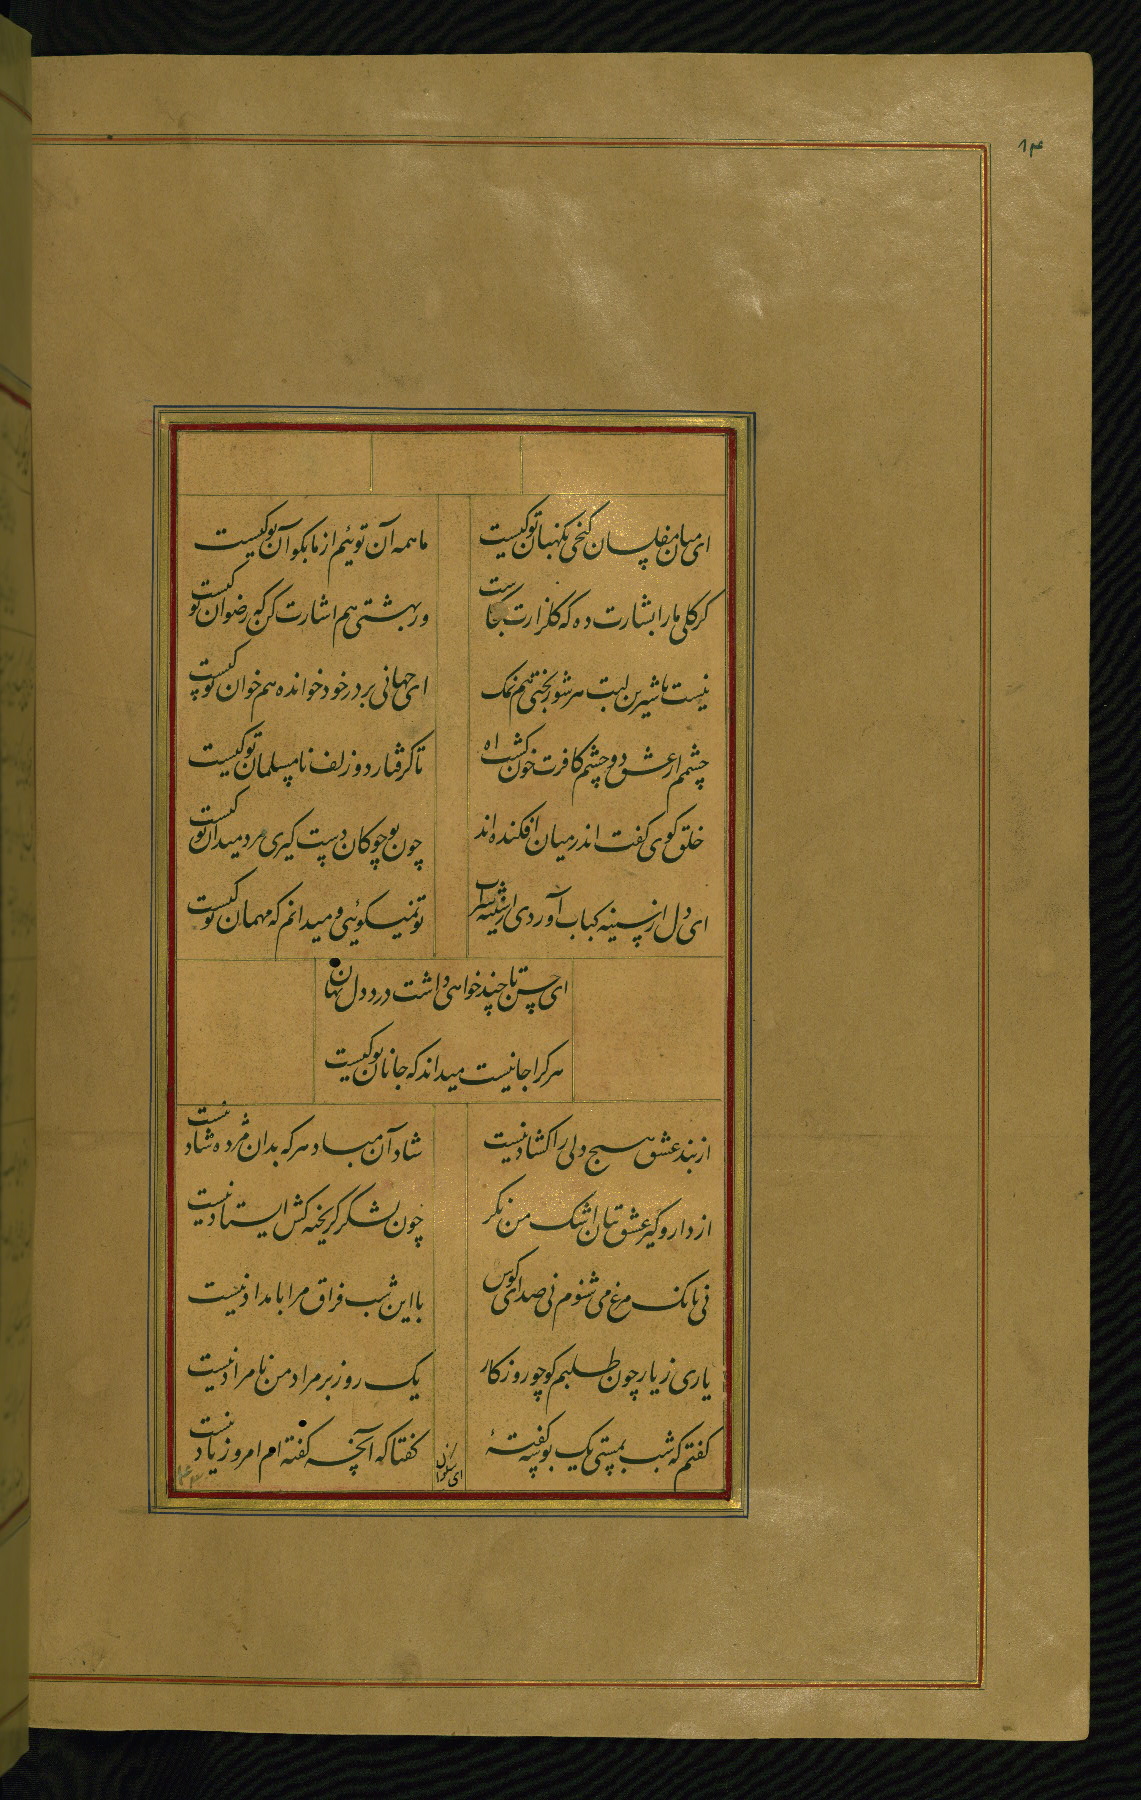 ۱۴
ای میان مفلسان گنجی نگهبان تو کیست
ما همه آن توئیم از ما بگو آن تو کیست
گر گلی ما را بشارت ده که گلزارت کجاست
ور بهشتی هم اشارت کن که رضوان تو کیست
نیست با شیرین لبت هر شور بختی هم نمک
ای جهانی بر در خود خوانده هم خوان تو کیست
چشمم از عشق دو چشم کافرت خون گشت اه
تا گرفتار دو زلف نامسلمان تو کیست
خلق گوی گفت اندر میان افکنده‌اند
چون تو چوکان دست گیری مرد میدان تو کیست
ای دل از سینه کباب آوردی از شیشه شراب
تو نمیگوئی و میدانم که مهمان تو کیست
ای حسن تا چند خواهی داشت درد دل نهان
هر کرا جانیست میداند که جانان تو کیست
از بند عشق هیچ دلی را کشاد نیست
شاد آن مباد هر که بدان مژده شاد نیست
از دار و گیر عشق بتان اشک من نگر
چون لشکر گریخته کش ایستاد نیست
نی بانک مرغ می شنوم نی صدای کوس
با این شب فراق مرا بامداد نیست
یاری ز یار چون طلبم کو چو روزگار
یک روز بر مراد من نامراد نیست
گفتم که شب بمستی یک بوسه گفتهٔ
گفتا که آنچه گفته ام امروز یاد نیست